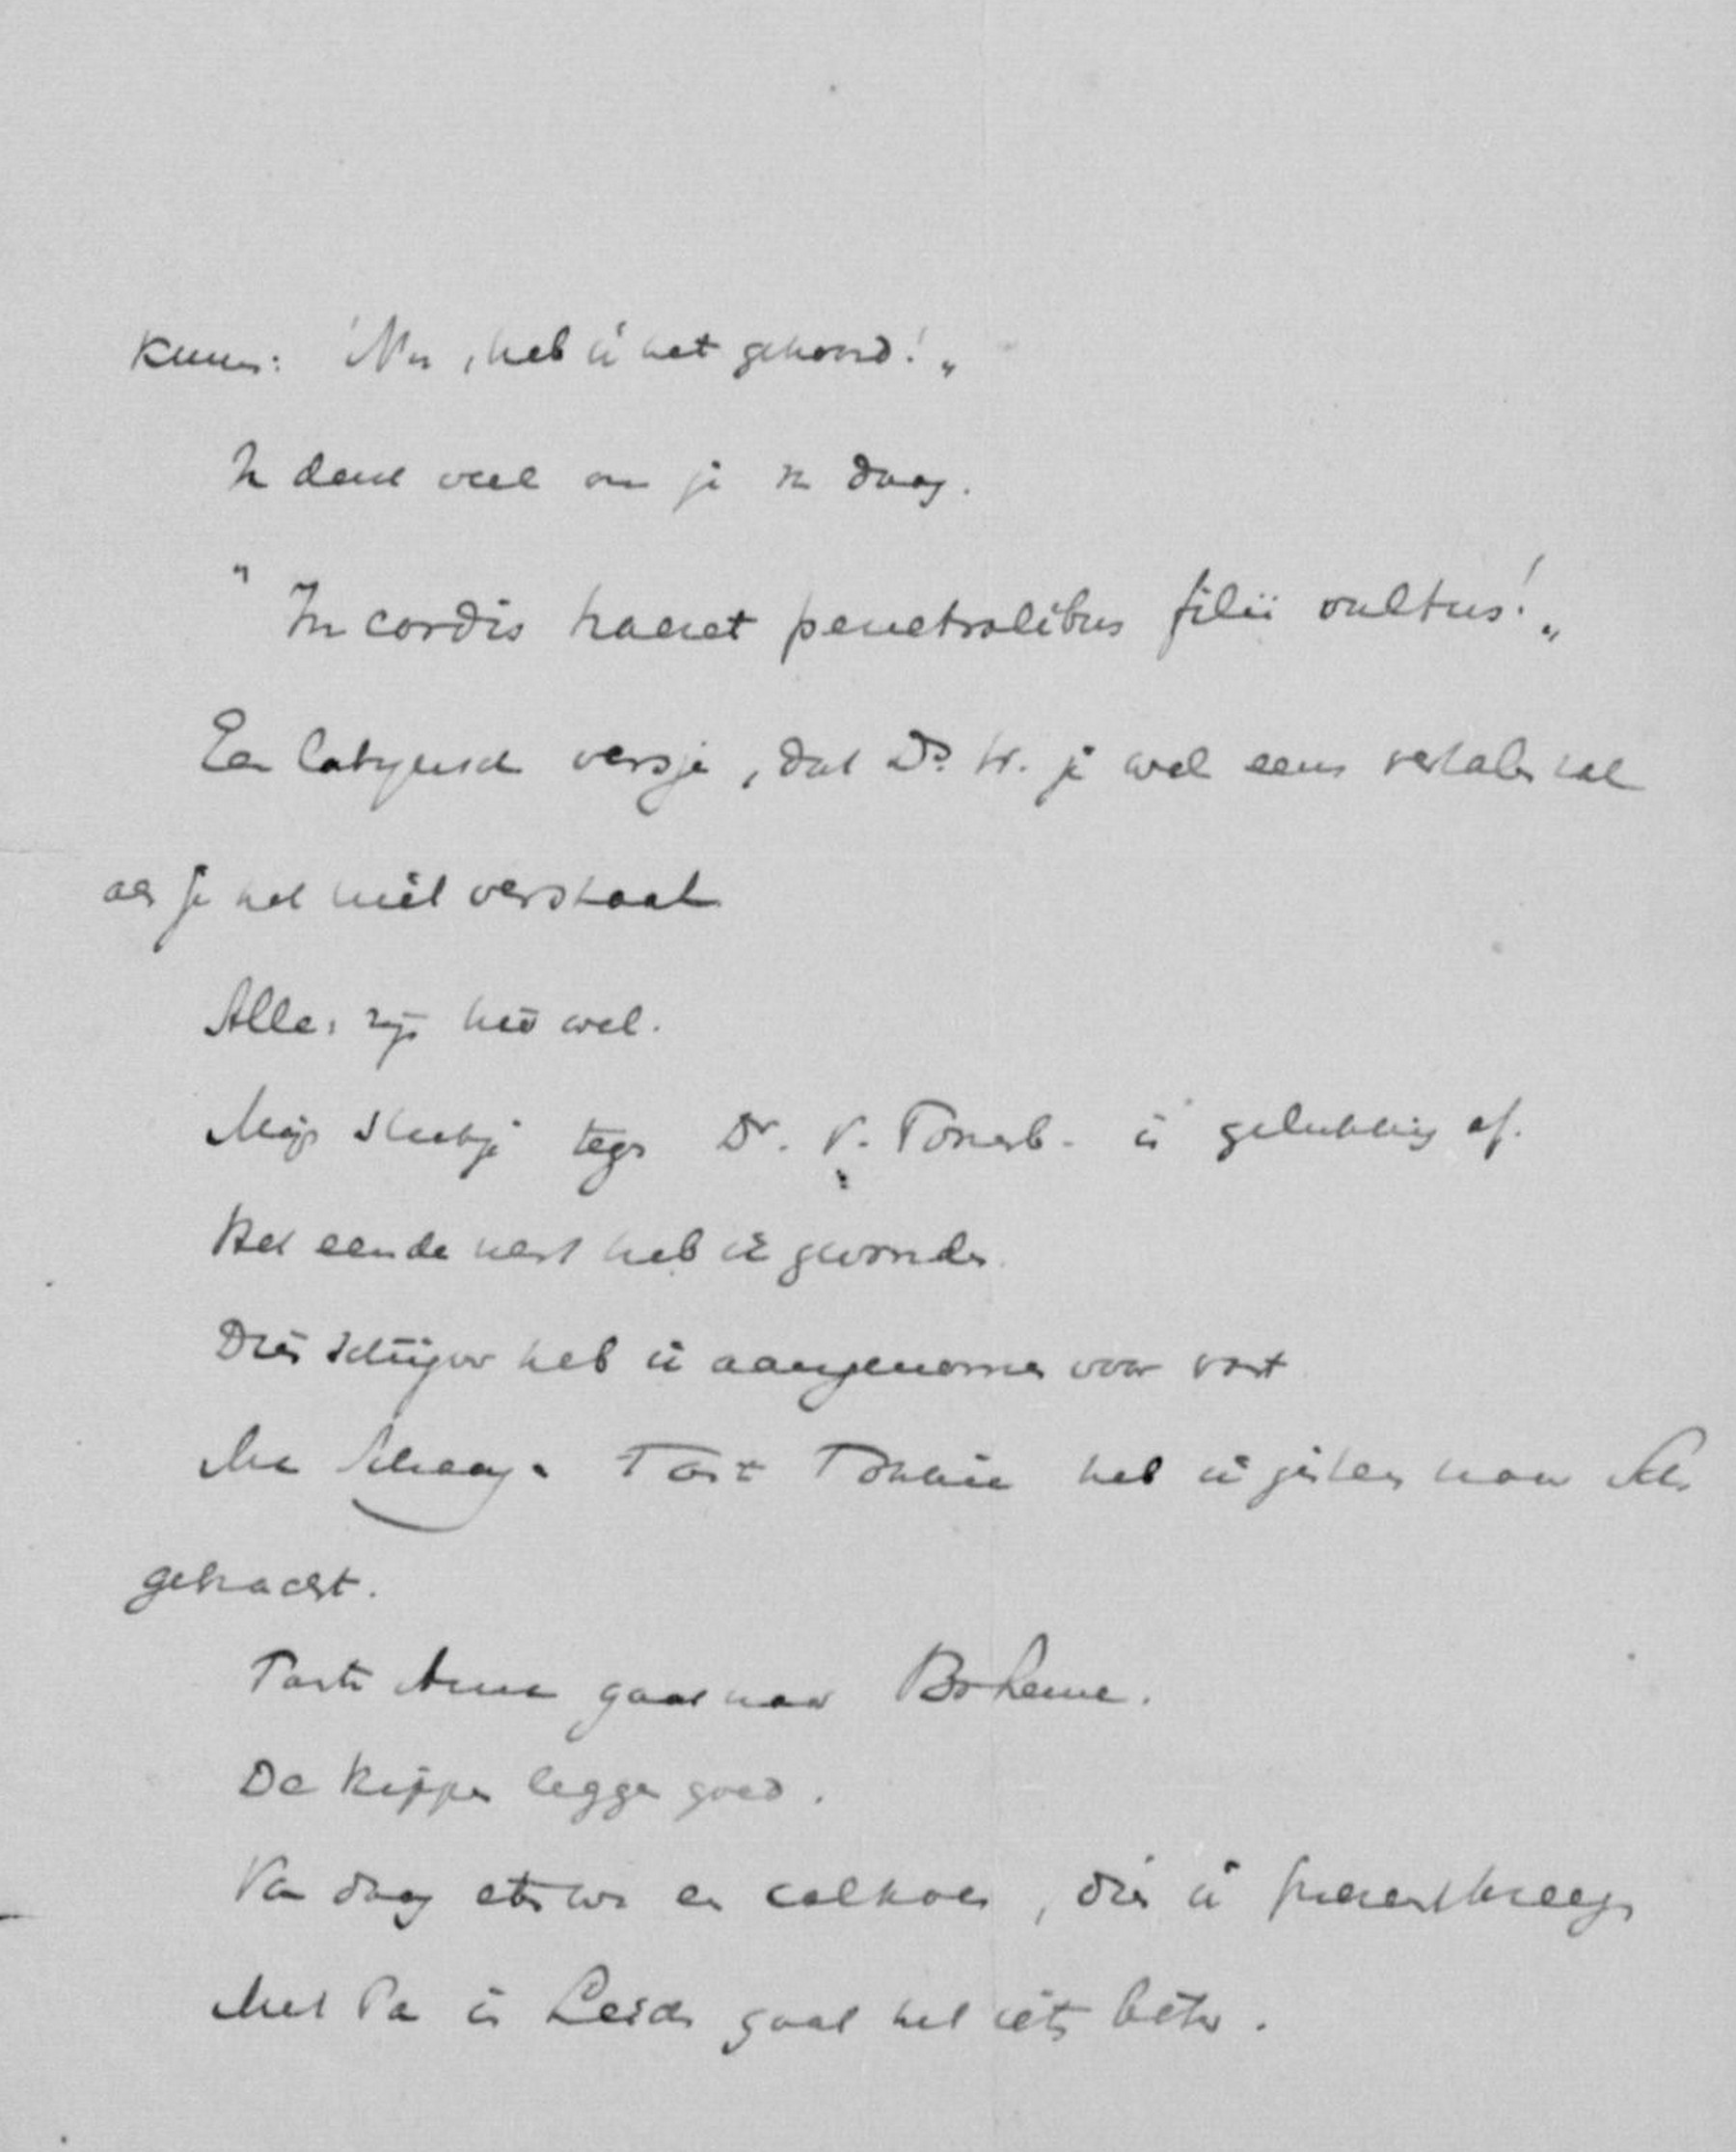 "Nu, heb ik het gehoord!"
Ik denk veel om je en daag.
"In cordis haeret penetralibus filii vultus!"
Een latynsch versje, dat Ds. W. je wel eens vertalen zal
als je het niet verstaat
Alles zijn hier wel.
Mijn stukje tegen Dr. V. Toorenb. is gelukkig af.
Het eende nest heb ik gevonden.
Dries heb ik aangenomen voor vast
Tante heb ik gisteren naar
gebracht.
Tante Anna gaat naar Boheme.
De kippen leggen goed.
Van daag eten we een calkoen, die ik present kreeg
Met Pa in Leiden gaat het iets beter.